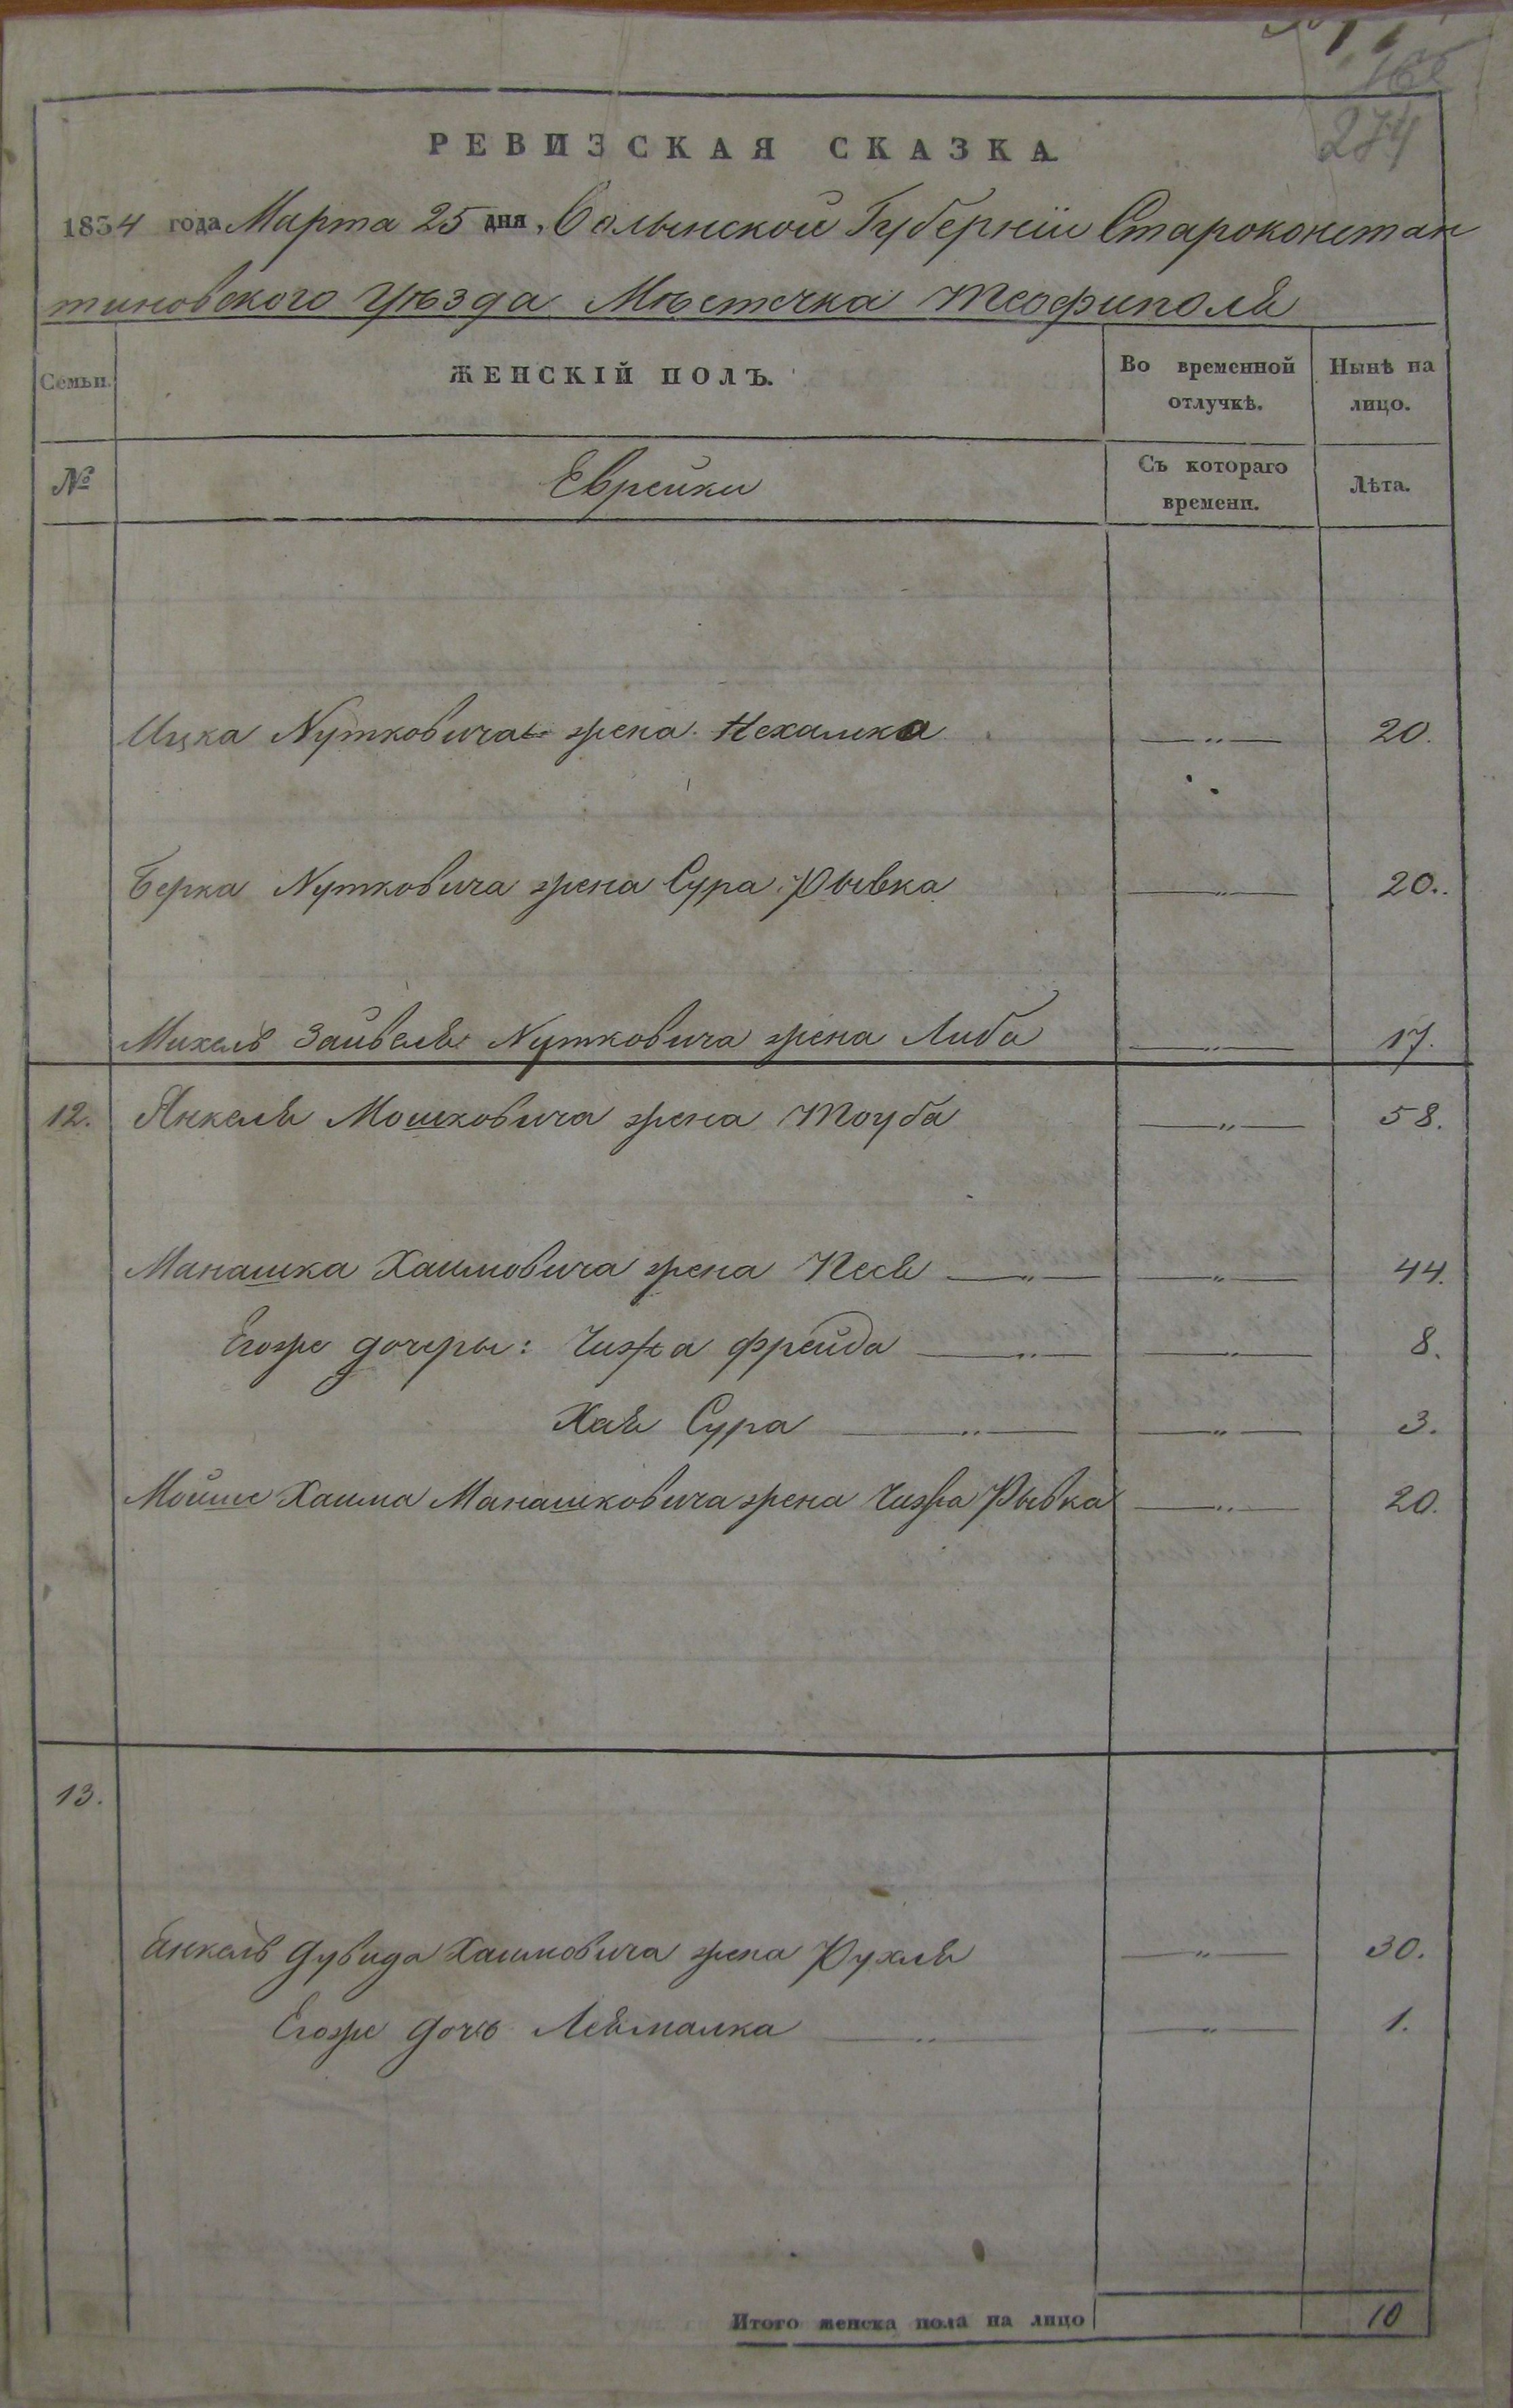 274
РЕВИЗСКАЯ СКАЗКА
1854 года Марта 25 дня, Волынской Губерніи Староконстан
тиновского Уѣзда Мѣстечка Теофиполя
Семьи.
ЖЕНСКІЙ ПОЛЪ.
Во временной отлучкѣ.
Нынѣ на лицо.
№
Еврейки
Съ котораго времени.
Лѣта.
Ицка Нутковича жена Нехамка —„— 20.
Берка Нутковича жена Сура Рывка —„— 20.
Михель Зайвеля Нутковича жена Либа —„— 17.
12. Янкеля Мошковича жена Тоуба —„— 58.
Манашка Хаимовича жена Песя —„— —„— 44.
Егоже дочеры: Чижа Фрейда —„— —„— 8.
Хая Сура —„— —„— 3.
Мойше Хаима Манашковича жена Чижа Рывка —„— 20.
13.
Янкель Дувида Хаимовича жена Рухля —„— 30.
Егоже дочь Леямалка —„— —„— 1.
Итого женска пола на лицо 10